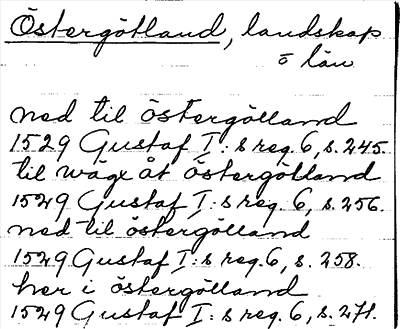 Östergötland, landskap
o län
ned til östergölland
1529 Gustaf I:s reg. 6, s. 245.
til wäge åt östergötland
1529 Gustaf I:s reg. 6, s. 256.
ned til östergölland
1529 Gustaf I:s reg. 6, s. 258.
her i östergölland
1529 Gustaf I:s reg. 6, s. 271.